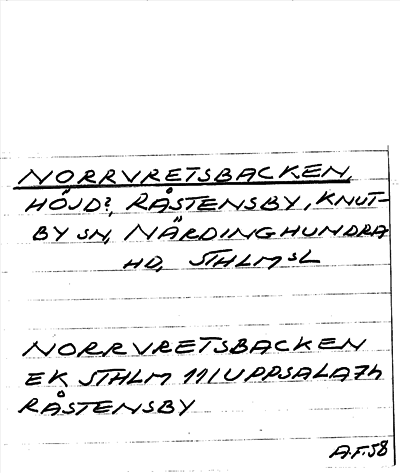 NORRVRETSBACKEN,
HÖJD?, RÅSTENSBY, KNUT-
BY SN, NÄRDINGHUNDRA
HD, STHLMSL
NORRVRETSBACKEN
EK STHLM 111 UPPSALA 7h
RÅSTENSBY
A.F. 58